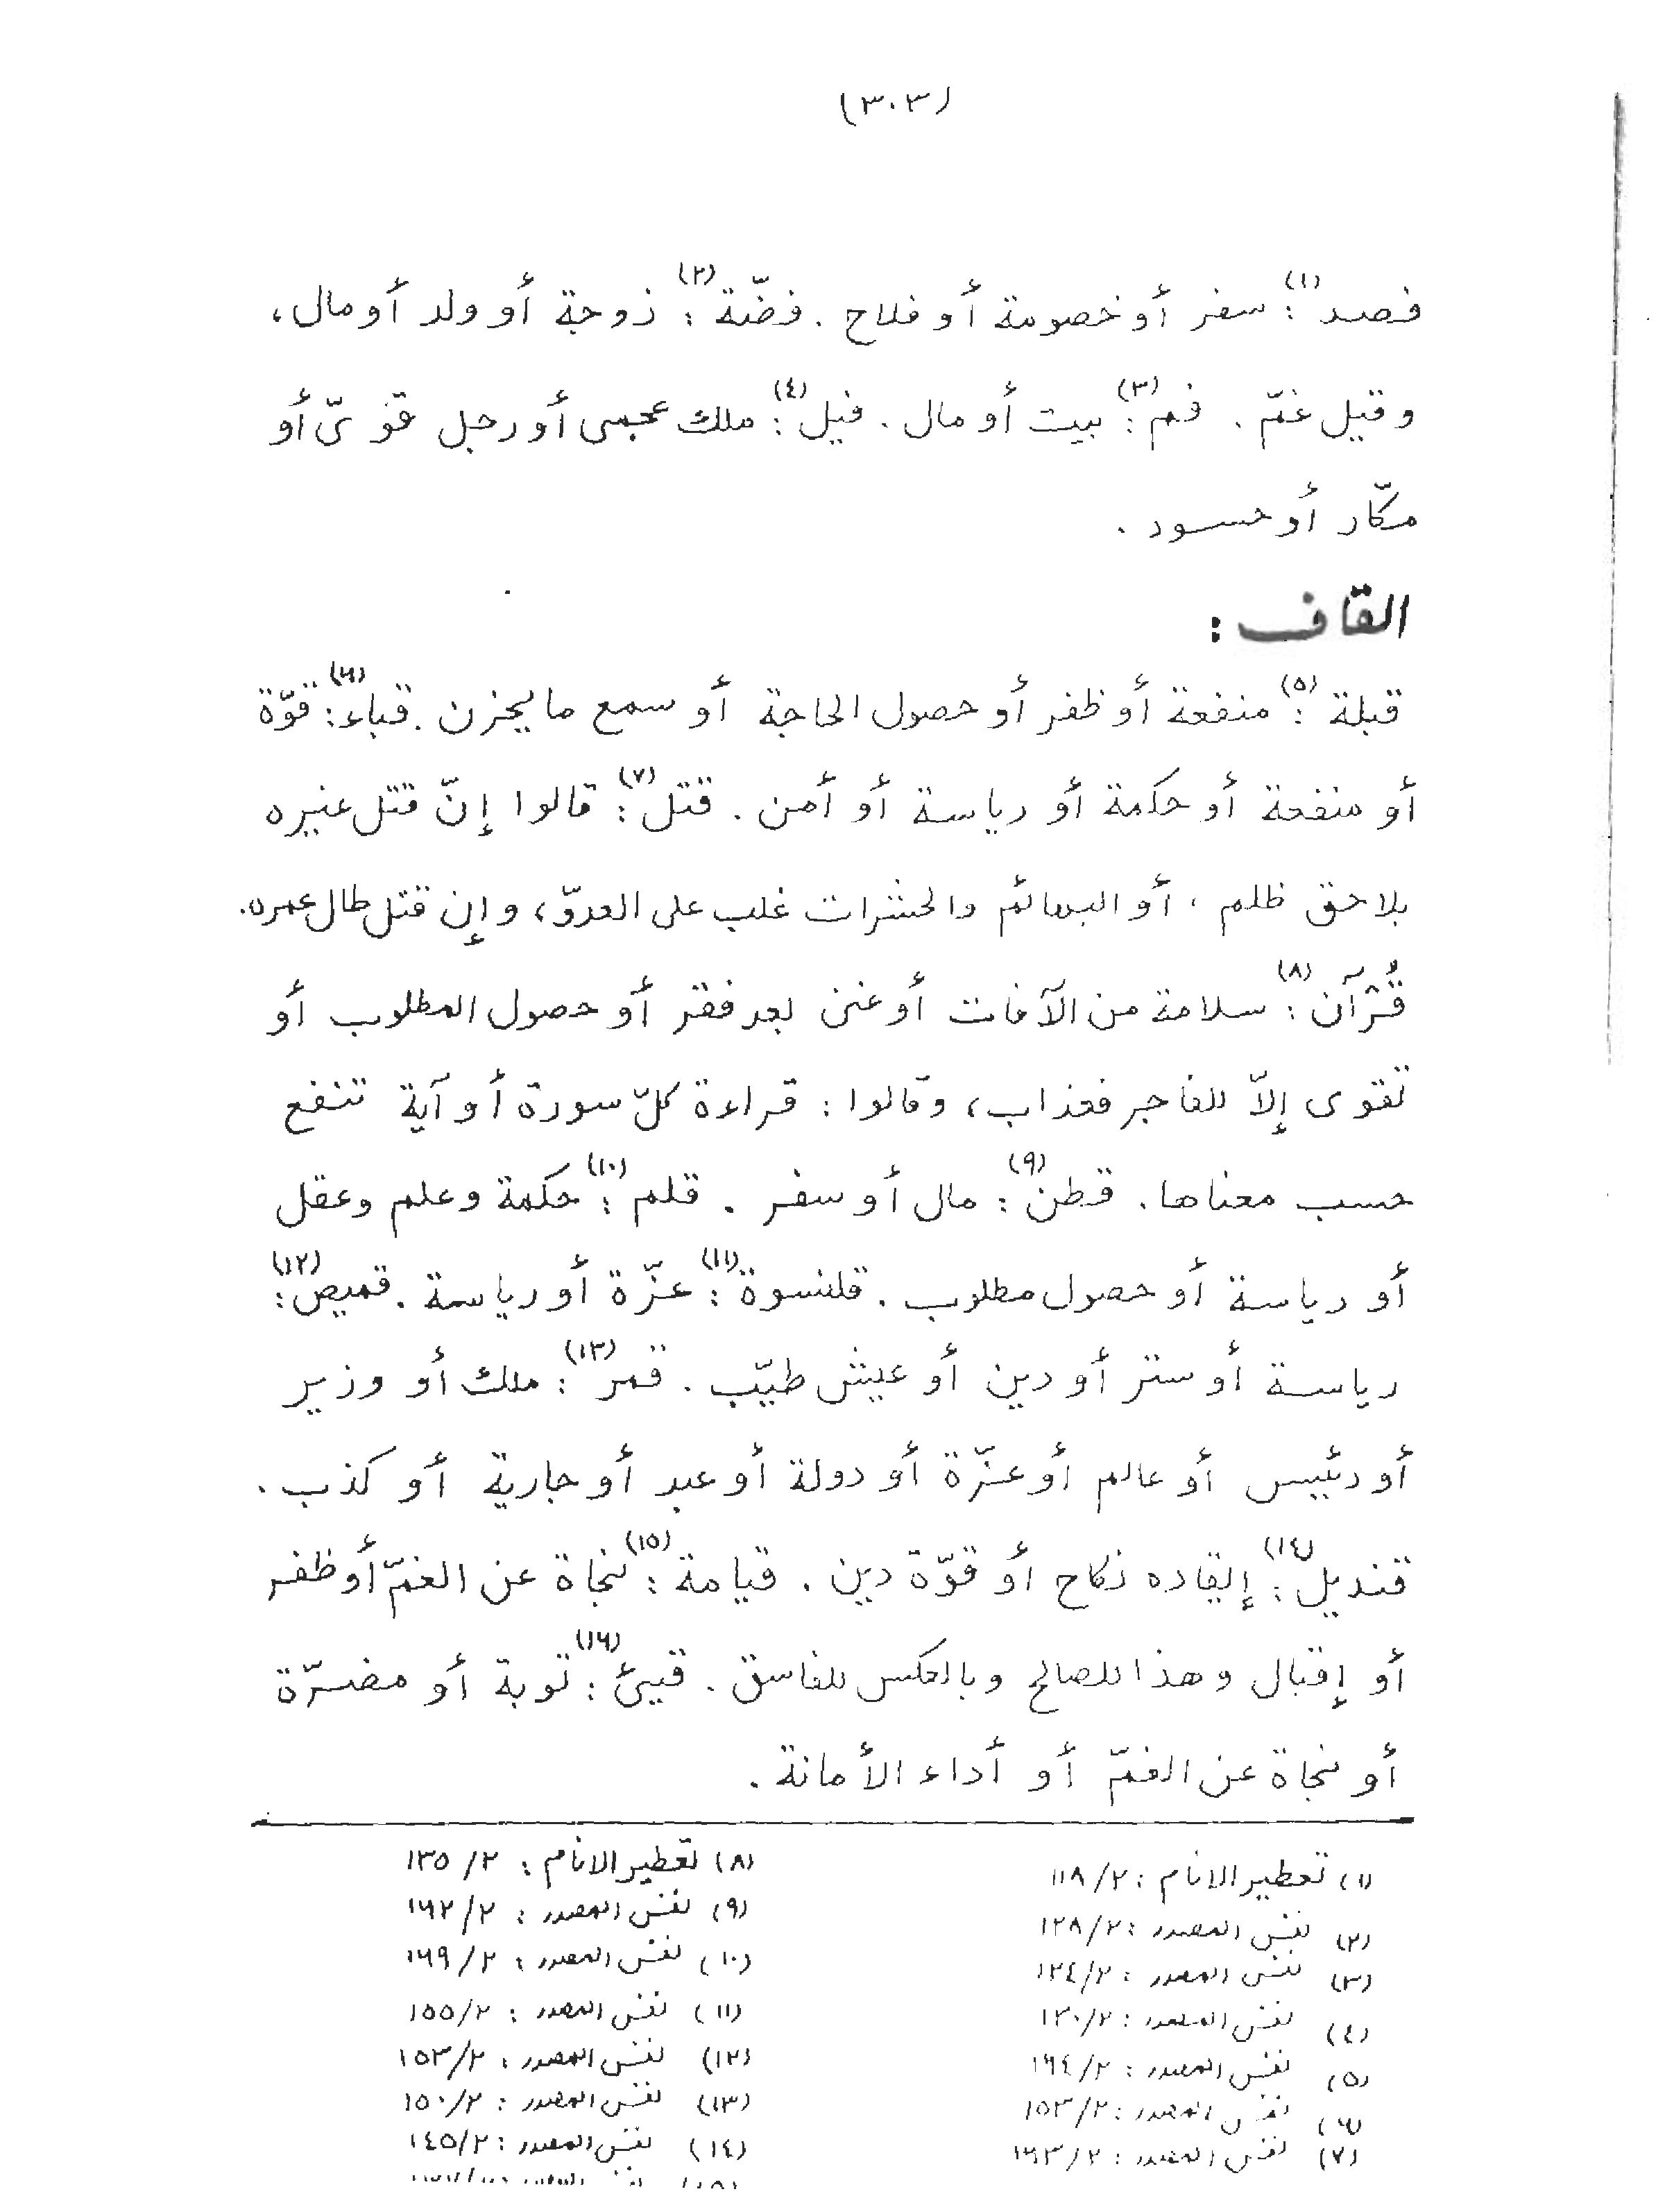 (٣٠٣)
فصد(١): سفر أو خصومة أو فلاح. فضّة(٢): زوجة أو ولد أو مال،
وقيل غمّ. فم(٣): بيت أو مال. فيل(٤): ملك عجمى أو رجل قوىّ أو
مكّار أو حسود.
القاف:
قبلة(٥): منفعة أو ظفر أو حصول الحاجة أو سمع ما يحزن. قباء(٦): قوّة
أو منفعة أو حكمة أو رياسة أو أمن. قتل(٧): قالوا إنّ قتل غيره
بلا حق ظلم، أو البهائم والحشرات غلب على العدوّ، وإن قتل طال عمره.
قُرْآن(٨): سلامة من الآفات أو غنى بعد فقر أو حصول المطلوب أو
تقوى إلاّ للفاجر فعذاب، وقالوا: قراءة كلّ سورة أو آية تنفع
حسب معناها. قطن(٩): مال أو سفر. قلم(١٠): حكمة وعلم وعقل
أو رياسة أو حصول مطلوب. قلنسوة(١١): عزّة أو رياسة. قميص(١٢):
رياسة أو ستر أو دين أو عيش طيّب. قمر(١٣): ملك أو وزير
أو رئيس أو عالم أو عزّة أو دولة أو عبد أو جارية أو كذب.
قنديل(١٤): إيقاده نكاح أو قوّة دين. قيامة(١٥): نجاة عن الغمّ أو ظفر
أو إقبال وهذا للصالح وبالعكس للفاسق. قيئ(١٦): توبة أو مضرّة
أو نجاة عن الغمّ أو أداء الأمانة.
(١) تعطير الانام: ١١٨/٢
(٢) نفس المصدر: ١٢٨/٢
(٣) نفس المصدر: ١٢٤/٢
(٤) نفس المصدر: ١٣٠/٢
(٥) نفس المصدر: ١٦٤/٢
(٦) نفس المصدر: ١٥٣/٢
(٧) نفس المصدر: ١٦٣/٢
(٨) تعطير الانام: ١٣٥/٢
(٩) نفس المصدر: ١٦٢/٢
(١٠) نفس المصدر: ١٦٩/٢
(١١) نفس المصدر: ١٥٥/٢
(١٢) نفس المصدر: ١٥٣/٢
(١٣) نفس المصدر: ١٥٠/٢
(١٤) نفس المصدر: ١٤٥/٢